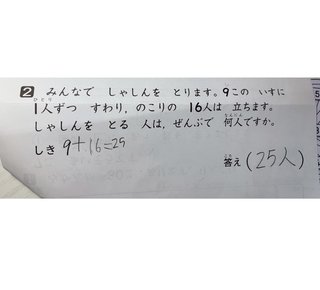 2 みんなで しゃしんを とります。9この いすに
1人ずつ すわり,のこりの 16人は 立ちます。
しゃしんを とる 人は,ぜんぶで 何人ですか。
しき 9+16=25
答え(25人)